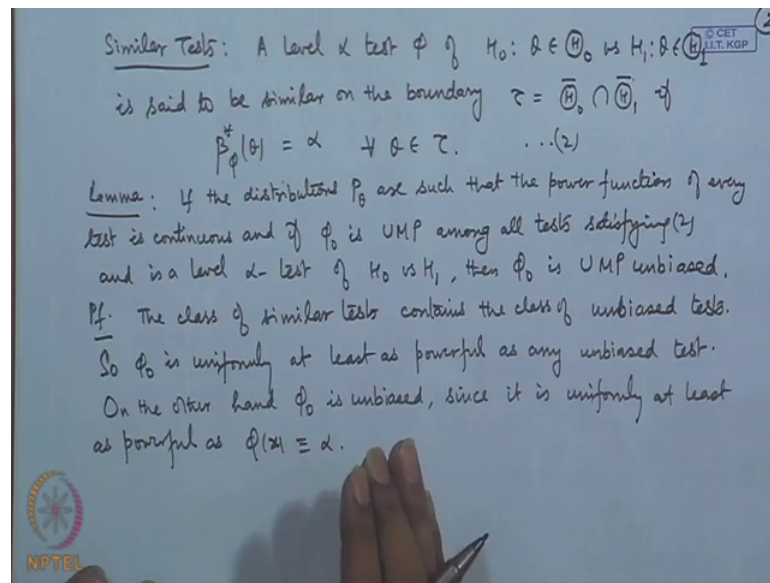 Similar Tests: A level α test φ of H₀: θ ∈ Ⓗ₀ vs H₁: θ ∈ Ⓗ₁
© CET
I.I.T. KGP
is said to be similar on the boundary τ = Ⓗ̄₀ ∩ Ⓗ̄₁ if
β*_φ(θ) = α ∀ θ ∈ τ. ...(2)
Lemma: If the distributions P_θ are such that the power function of every
test is continuous and if φ₀ is UMP among all tests satisfying (2)
and is a level α-test of H₀ vs H₁, then φ₀ is UMP unbiased.
Pf. The class of similar tests contains the class of unbiased tests.
So φ₀ is uniformly at least as powerful as any unbiased test.
On the other hand φ₀ is unbiased, since it is uniformly at least
as powerful as φ(x) ≡ α.
NPTEL